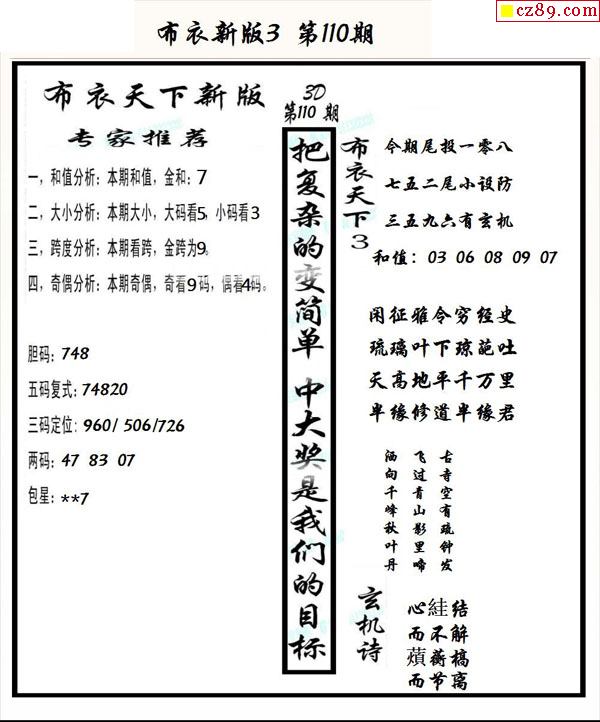 cz89.com
布衣新版3 第110期
布衣天下新版
专家推荐
一，和值分析：本期和值，金和：7
二，大小分析：本期大小，大码看5，小码看3
三，跨度分析：本期看跨，金跨为9。
四，奇偶分析：本期奇偶，奇看9码，偶看4码。
胆码：748
五码复式：74820
三码定位：960/ 506/726
两码：47 83 07
包星：**7
3D
第110 期
把复杂的变简单 中大奖是我们的目标
布衣天下3
今期尾投一零八
七五二尾小设防
三五九六有玄机
和值：03 06 08 09 07
闲征雅令穷经史
琉璃叶下琼葩吐
天高地平千万里
半缘修道半缘君
古寺空有疏钟发
飞过青山影里啼
洒向千峰秋叶丹
玄机诗
心絓结
而不解
薠蘅槁
而节离